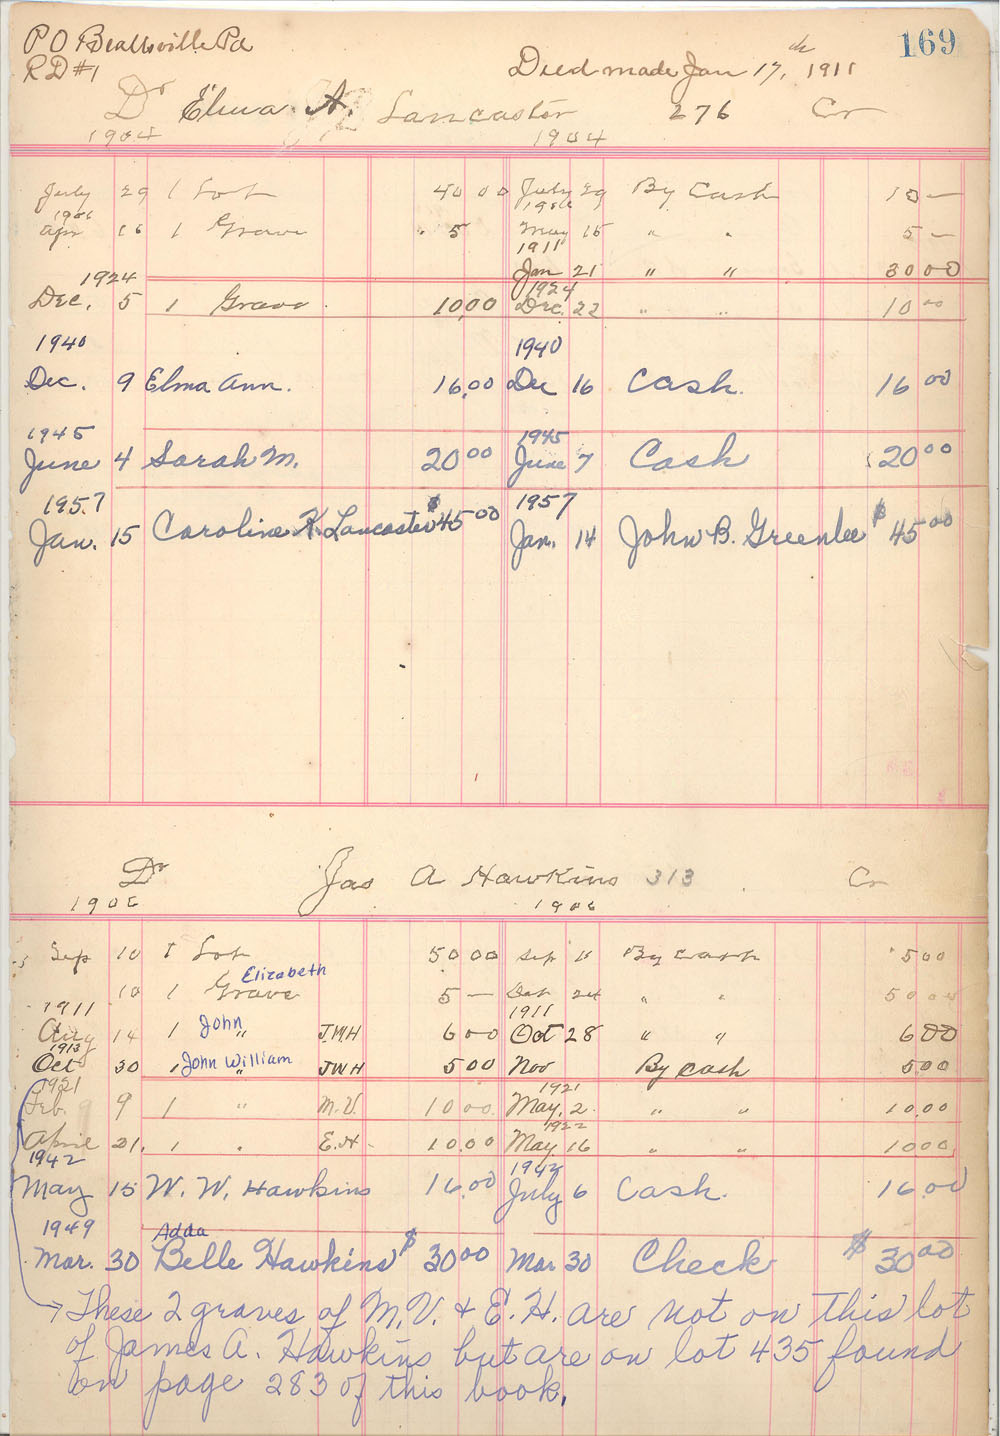 P O Beallsville Pa
169
R D #1
Deed made Jan 17, th 1911
Dr Elma A. Lancaster 276 Cr
1904 1904
July 29 1 Lot 40 00 July 29 By Cash 10 —
1906 1906
Apr 16 1 Grave 5 May 15 " " 5 —
1911
Jan 21 " " 30 00
1924 1924
Dec. 5 1 Grave 10.00 Dec. 22 " " 10 00
1940 1940
Dec. 9 Elma Ann. 16.00 Dec 16 Cash 16 00
1945 1945
June 4 Sarah M. 20 00 June 7 Cash 20 00
1957 1957
Jan. 15 Caroline K. Lancaster $45 00 Jan. 14 John B. Greenlee $45 00
Dr Jas A Hawkins 313 Cr
1906 1906
Sep 10 1 Lot 50 00 Sep 11 By cash 5 00
Elizabeth
10 1 Grave 5 — 24 " " 50 00
1911 1911
Aug 14 1 John " J.W.H 6 00 Oct 28 " " 6 00
1913
Oct 30 1 John William " JWH 5 00 Nov By Cash 5 00
1921 1921
Feb. 9 1 " M.V. 10 00 May. 2 " " 10.00
1922
April 21. 1 " E.H. 10.00 May 16 " " 10 00
1942 1942
May 15 W. W. Hawkins 16.00 July 6 Cash. 16.00
1949 Adda
Mar. 30 Belle Hawkins $30 00 Mar 30 Check $30 00
These 2 graves of M.V. & E.H. are not on this lot
of James A. Hawkins but are on lot 435 found
on page 283 of this book.